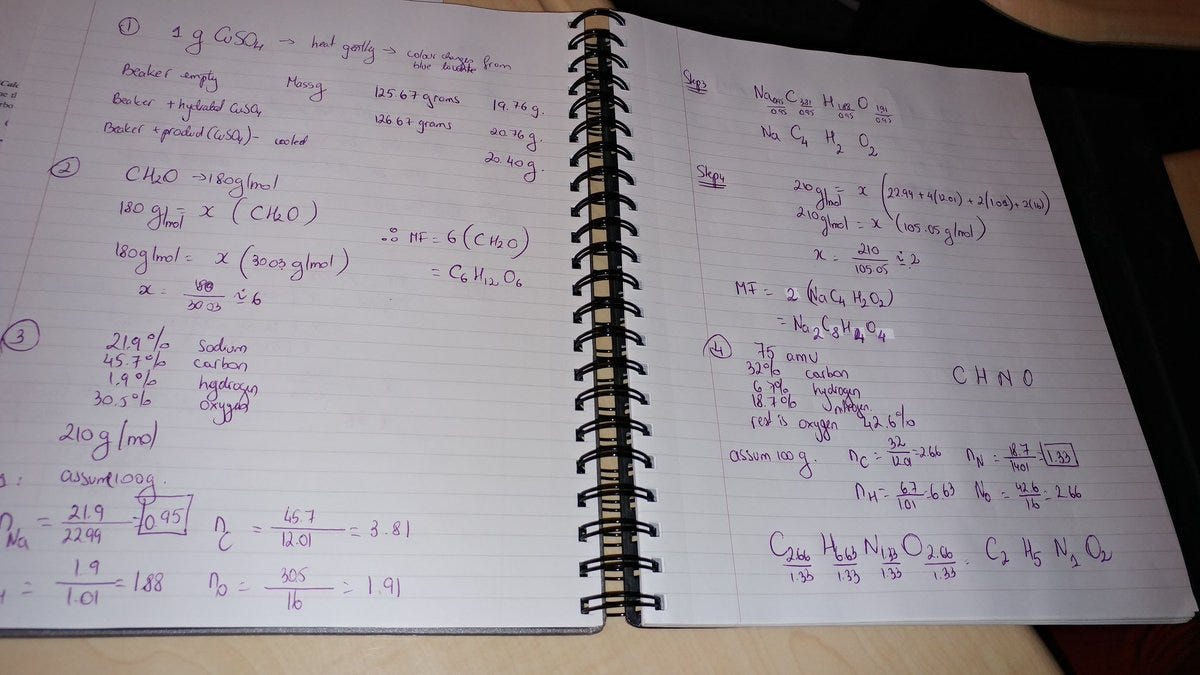 ① 1 g CuSO4 → heat gently → colour changes from
blue to white
Beaker empty Mass g 125.67 grams 19.76 g.
Beaker + hydrated CuSO4 126.67 grams 20.76 g.
Beaker + product (CuSO4) - cooled 20.40 g.
② CH2O → 180 g/mol
180 g/mol = x (CH2O)
180 g/mol = x (30.03 g/mol)
x = 180/30.03 ≈ 6
∴ MF = 6 (CH2O)
= C6 H12 O6
③ 21.9% sodium
45.7% carbon
1.9% hydrogen
30.5% oxygen
210 g/mol
1: assume 100g.
nNa = 21.9/22.99 = 0.95 nC = 45.7/12.01 = 3.81
= 1.9/1.01 = 1.88 nO = 30.5/16 = 1.91
Step 3 Na 0.95/0.95 C 3.81/0.95 H 1.88/0.95 O 1.91/0.95
Na C4 H2 O2
Step 4 210 g/mol = x (22.99 + 4(12.01) + 2(1.01) + 2(16))
210 g/mol = x (105.05 g/mol)
x = 210/105.05 ≈ 2
MF = 2 (NaC4 H2O2)
= Na2C8H4O4
④ 75 amu
32% carbon
6.7% hydrogen
18.7% nitrogen.
rest is oxygen 42.6%
C H N O
assum 100 g. nC = 32/12.01 = 2.66 nN = 18.7/14.01 = 1.33
nH = 6.7/1.01 = 6.63 NO = 42.6/16 = 2.66
C 2.66/1.33 H 6.63/1.33 N 1.33/1.33 O 2.66/1.33 = C2 H5 N1 O2